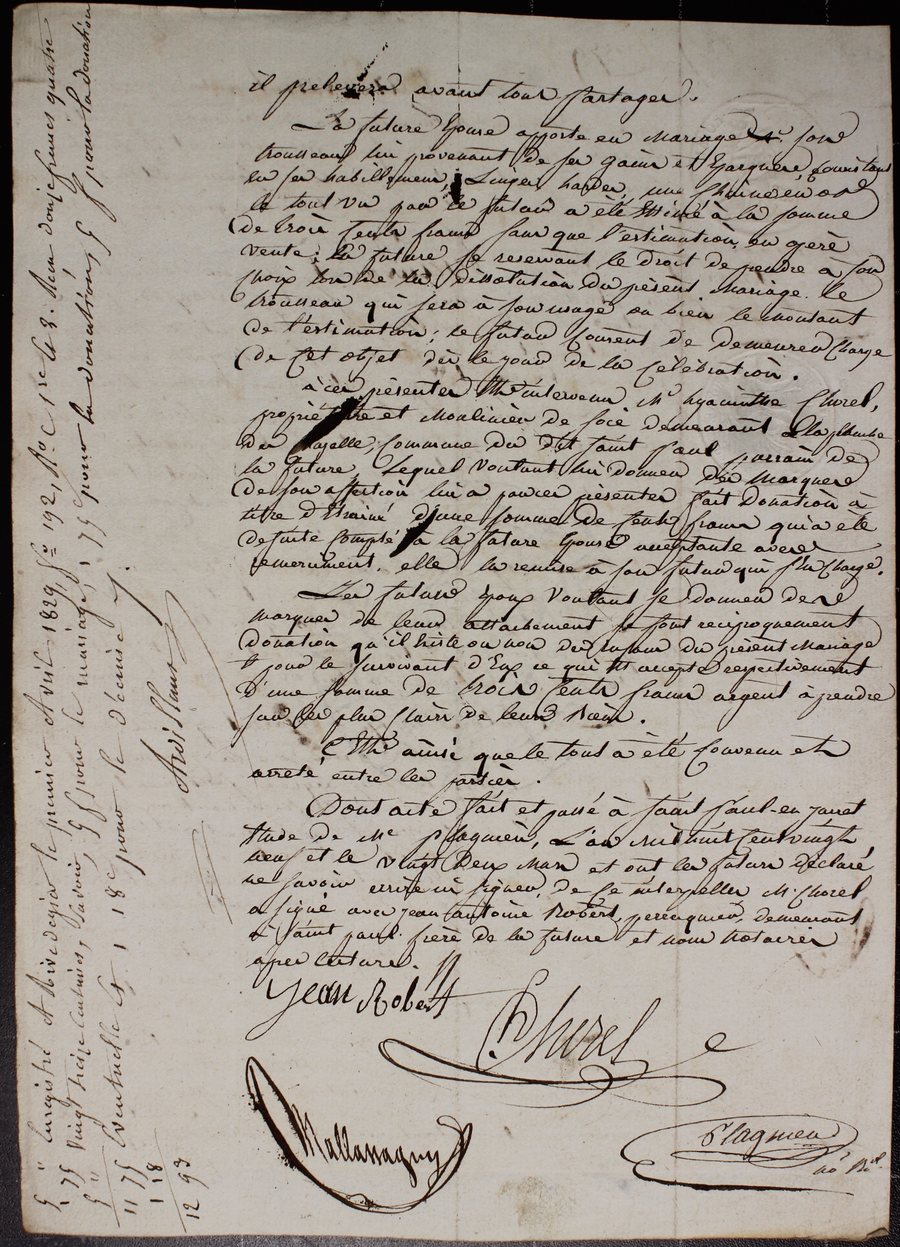 il prelevera avant tout partager.
La future Epouse apporte en Mariage son
trousseau lui provenant de ses gains et Epargnes, consistant
en ses habillemens, Linges hardes, une Chaine en or
le tout vu par le futur a été Estimé à la somme
de trois Cents francs sans que l'estimation en opere
vente; la future se reservant le droit de prendre à son
choix lors de la dissolution du présent Mariage le
trousseau qui sera à son usage ou bien le montant
de l'estimation; le futur Consent de demeurer Chargé
de cet objet dès le jour de la célébration.
à ces présentes Est intervenu Mr hyacinthe Chorel,
propriétaire et Moulinier de soie demeurant à la plambe
du, Commune du dit saint Paul parrain de
la future Lequel Voulant lui donner des Marques
de son affection lui a par ces présentes fait Donation à
titre d'Etraine d'une somme de Cents francs qui a été
de suite Compté à la future Epouse acceptante avec
remerciment. elle la remise à son futur qui s'en Charge.
Les futurs Epoux Voulant se donner de
marques de leur attachement se font reciproquement
donation qu'il Existe ou non des Enfans du présent Mariage
et pour le survivant d'Eux ce qui Est accepté respectivement
D'une somme de trois Cents francs argent à prendre
sur les plus Clairs de leurs Biens.
C'Est ainsi que le tous a été Convenu et
arreté entre les parties.
Dont acte fait et passé à saint Paul-en-jarret
Etude de Me Plagnieu, L'an mil huit Cent vingt
neuf et le vingt Deux Mars et ont les future Déclaré
ne savoir écrire ni signer, de ce interpellés Mr Chorel
a signé avec jean antoine Robert, perruquier, demeurant
à saint paul frère de la future et nous notaires
apres lecture.
Jean Robert
Chorel
Mallassagny
Plagnieu
no. Rd.
Enregistré à Rivedegier le premier Avril 1829 fo 192, Ro C 1re et 3. Reçu douze francs quatre
Vingt treize centimes, savoir, 5f pour le mariage, 1 75c pour la donation, 5f pour la donation
Eventuelle Et 1 18c pour le décime.
5 "
1 75
5 "
11 75
1 18
12 93